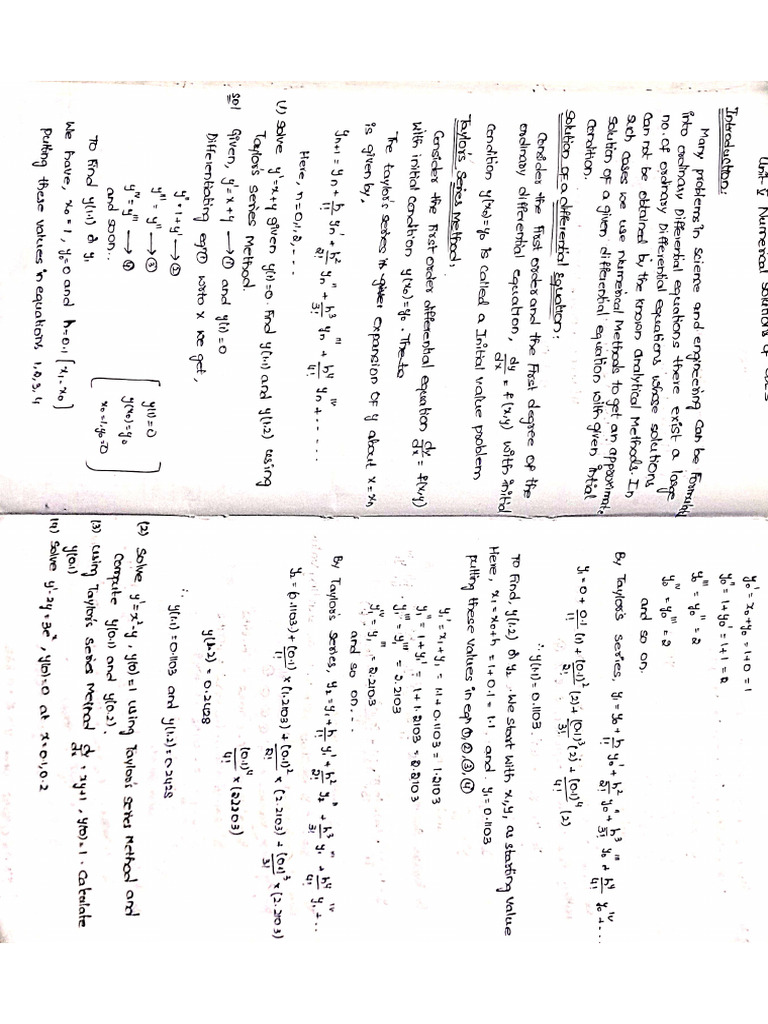 Unit-V Numerical solutions of ODES
Introduction:
Many problems in science and engineering can be Formulated
into ordinary Differential equations there exist a large
no. of ordinary Differential equations whose solutions
can not be obtained by the known analytical Methods. In
such cases we use Numerical Methods to get an approximate
solution of a given differential equation with given initial
condition.
Solution of a differential equation:
Consider the First order and the First degree of the
ordinary differential equation, dy/dx = f(x,y) with initial
condition y(x₀)=y₀ is called a Initial value problem
Taylor's Series Method:
Consider the First order differential equation dy/dx = f(x,y)
with initial condition y(x₀)=y₀. The to
The taylor's series is given expansion of y about x=xₙ
is given by,
yₙ₊₁ = yₙ + h/1! yₙ' + h²/2! yₙ'' + h³/3! yₙ''' + h⁴/4! yₙⁱᵛ + .....
Here, n=0,1,2,...
(1) Solve y'=x+y given y(1)=0. Find y(1.1) and y(1.2) using
Taylor's series Method.
Sol Given, y'=x+y → ① and y(1)=0
Differentiating eq① w.r.to x we get,
y''=1+y' → ②
y'''=y'' → ③
yⁱᵛ=y''' → ④
and soon..
y(1)=0
y(x₀)=y₀
x₀=1, y₀=0
To Find y(1.1) & y₁
We have, x₀=1, y₀=0 and h=0.1 [x₁-x₀]
Putting these values in equations 1,2,3,4
y₀'=x₀+y₀=1+0=1
y₀''=1+y₀'=1+1=2
y₀'''=y₀''=2
y₀ⁱᵛ=y₀'''=2
and so on.
By Taylor's series, y₁=y₀+h/1! y₀'+h²/2! y₀''+h³/3! y₀'''+h⁴/4! y₀ⁱᵛ+...
y₁=0+0.1/1! (1)+(0.1)²/2! (2)+(0.1)³/3! (2)+(0.1)⁴/4! (2)
∴ y(1.1)=0.1103
To Find, y(1.2) & y₂. We start with x₁y₁ as starting value
Here, x₁=x₀+h=1+0.1=1.1 and y₁=0.1103
putting these values in eqn ①,②,③,④
y₁'=x₁+y₁=1.1+0.1103=1.2103
y₁''=1+y₁'=1+1.2103=2.2103
y₁'''=y₁''=2.2103
y₁ⁱᵛ=y₁'''=2.2103
and so on...
By Taylor's series, y₂=y₁+h/1! y₁'+h²/2! y₁''+h³/3! y₁'''+h⁴/4! y₁ⁱᵛ+..
y₂=(0.1103)+(0.1)/1! ×(1.2103)+(0.1)²/2! ×(2.2103)+(0.1)³/3! ×(2.2103)
(0.1)⁴/4! ×(2.2203)
y(1.2)=0.2428
∴ y(1.1)=0.1103 and y(1.2)=0.2428
(2) Solve y'=x²-y, y(0)=1 using Taylor's series Method and
Compute y(0.1) and y(0.2).
(3) using Taylor's series Method dy/dx=xy+1, y(0)=1. Calculate
y(0.1)
(4) Solve y'-2y=3eˣ, y(0)=0 at x=0.1,0.2